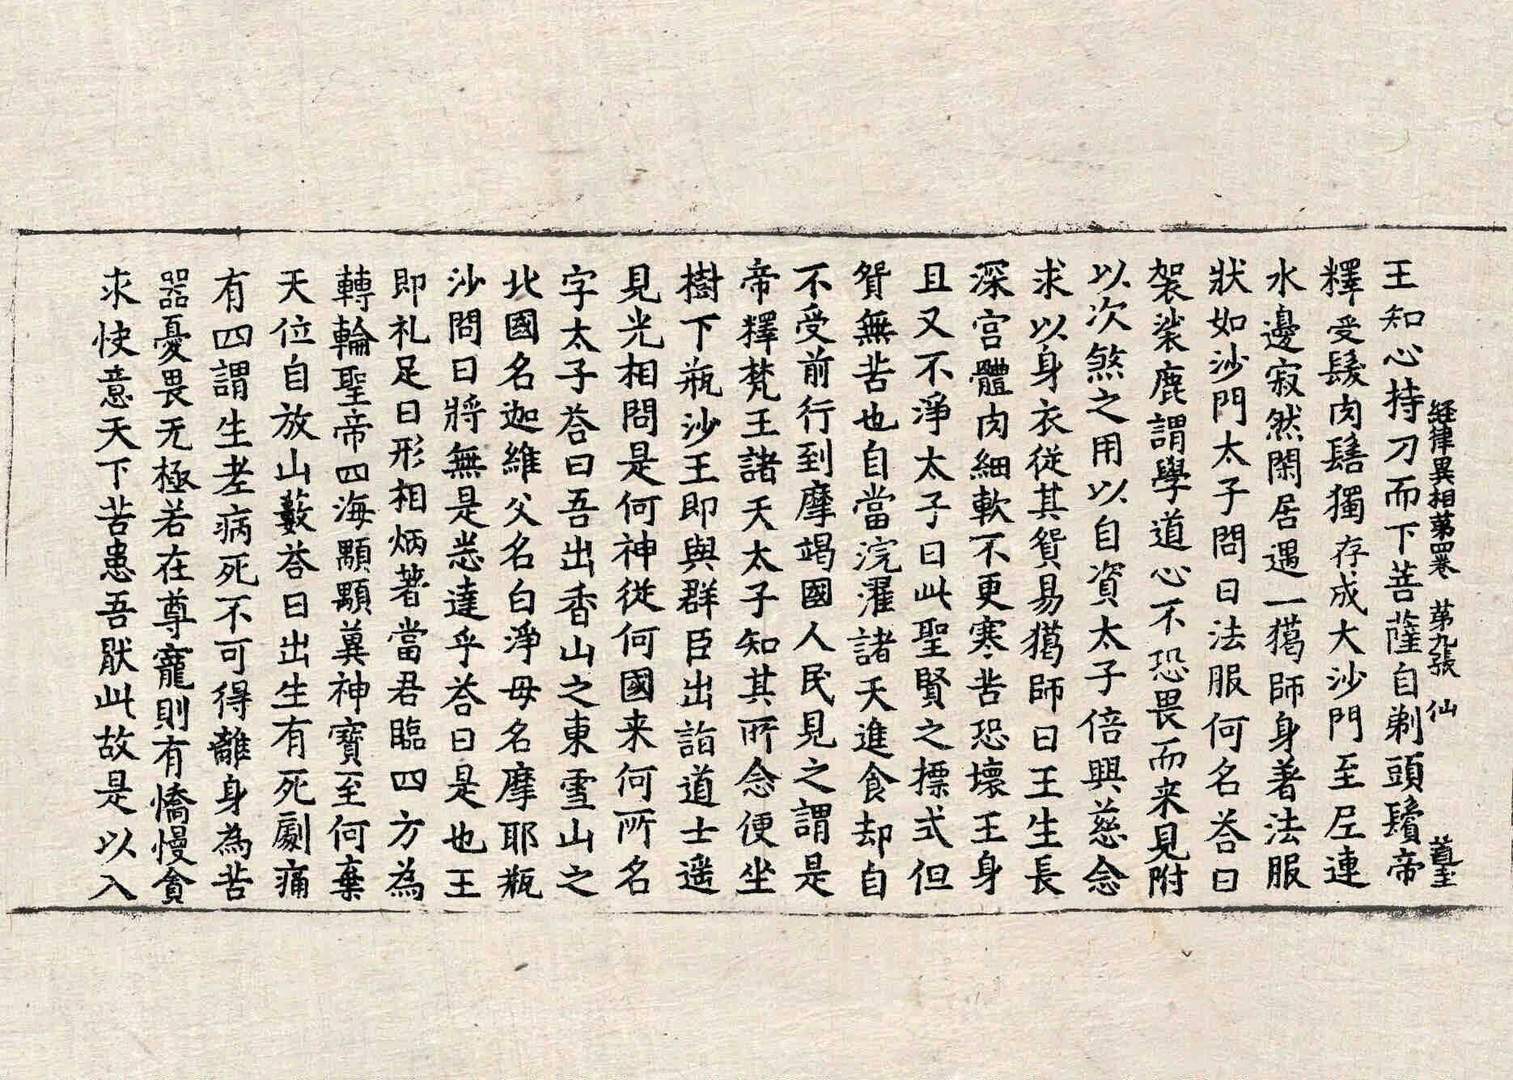 経律異相第四卷 第九張 仙
王知心持刀而下菩薩自剃頭鬚帝
釋受髮肉髻獨存成大沙門至𡰱連
水邊寂然閑居遇一獦師身著法服
狀如沙門太子問曰法服何名荅曰
袈裟鹿謂學道心不恐畏而来見附
以次煞之用以自資太子倍興慈念
求以身衣従其貿易獦師曰王生長
深宫體肉細軟不更寒苦恐壞王身
且又不淨太子曰此聖賢之摽式但
貿無苦也自當浣濯諸天進食却自
不受前行到摩竭國人民見之謂是
帝釋梵王諸天太子知其所念便坐
樹下瓶沙王即與群臣出詣道士遥
見光相問是何神従何國来何所名
字太子荅曰吾出香山之東雪山之
北國名迦維父名白淨母名摩耶瓶
沙問曰將無是悉達乎荅曰是也王
即礼足曰形相炳著當君臨四方為
轉輪聖帝四海顒顒兾神寶至何棄
天位自放山藪荅曰出生有死劇痛
有四謂生老病死不可得離身為苦
器憂畏无極若在尊寵則有憍慢貪
求快意天下苦患吾猒此故是以入